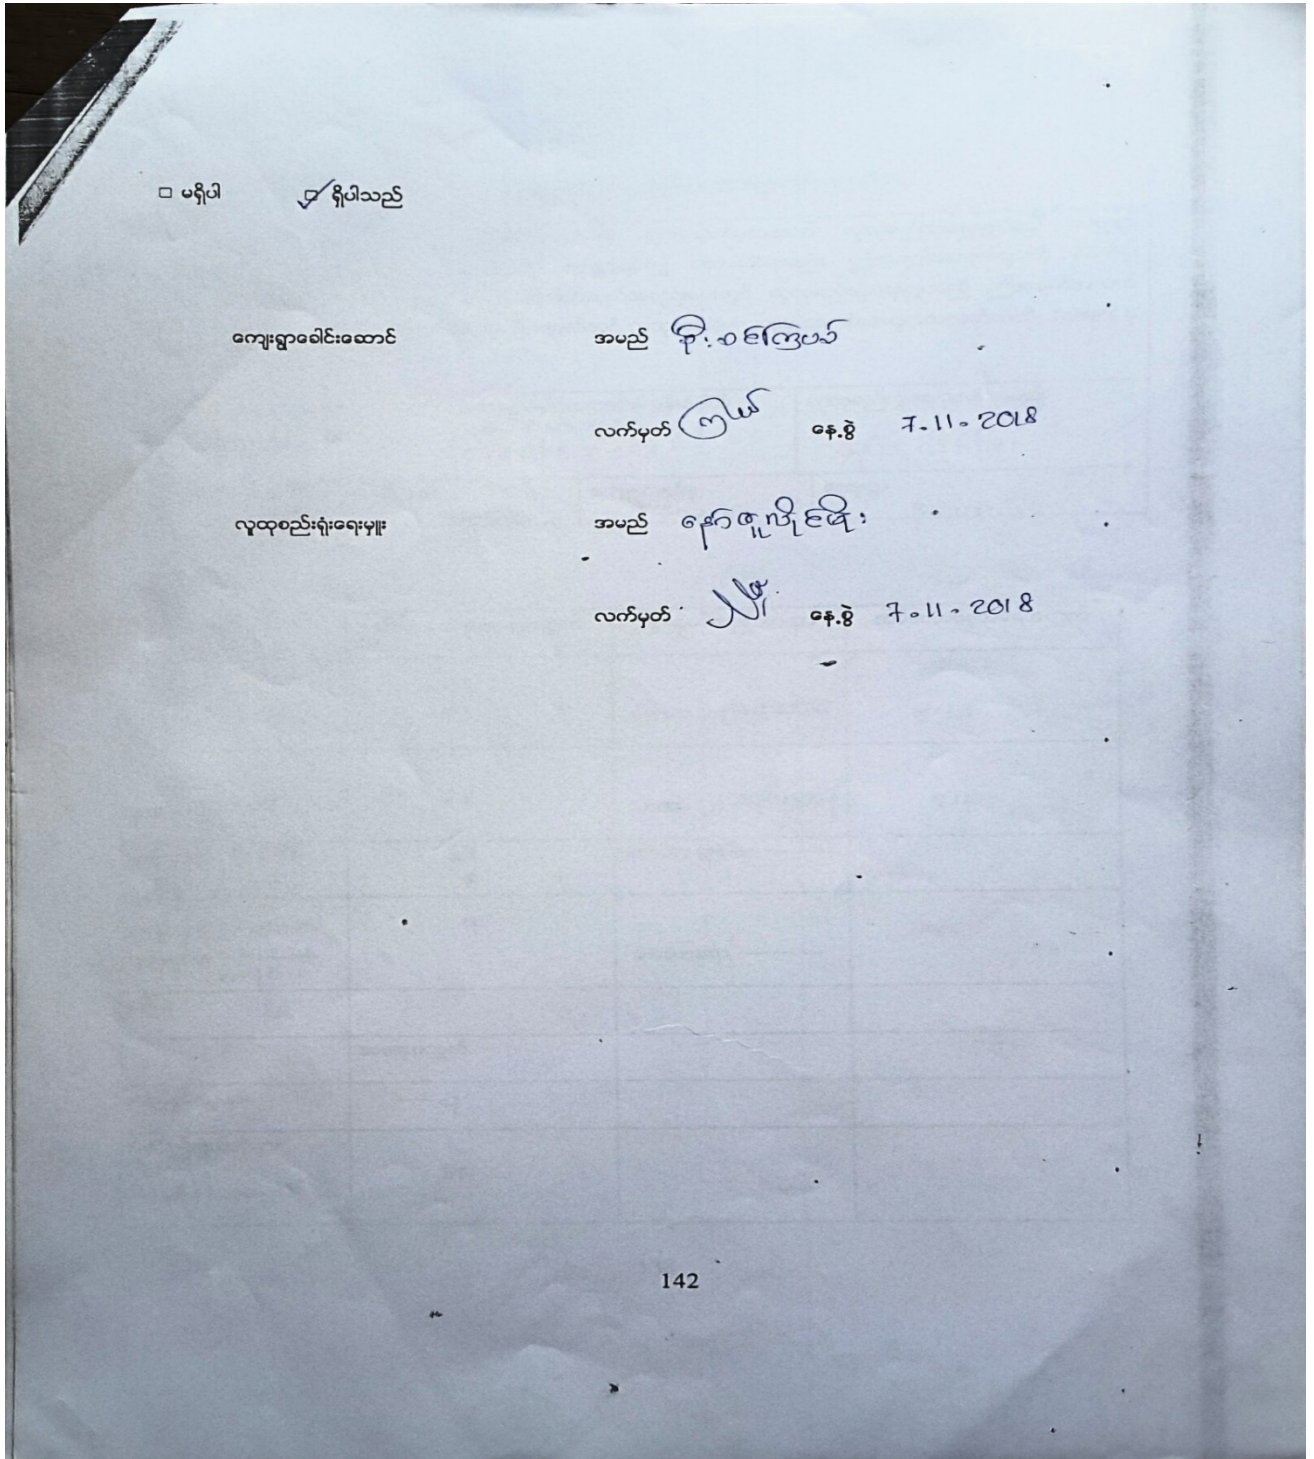 □ မရှိပါ ☑ ရှိပါသည်
ကျေးရွာခေါင်းဆောင် အမည် စောစင်ကြပယ်
လက်မှတ် နေ့စွဲ 7.11.2018
လူထုစည်းရုံးရေးမှူး အမည် နော်ဇူလိုင်မိုး
လက်မှတ် နေ့စွဲ 7.11.2018
142